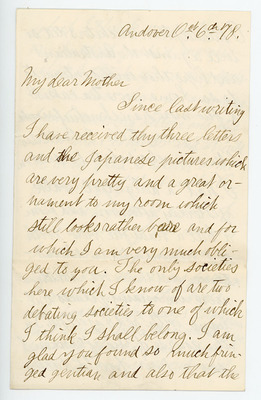 Andover Oct. 6th 78.
My dear Mother
Since last writing
I have received thy three letters
and the Japanese pictures which
are very pretty and a great or-
nament to my room which
still looks rather bare and for
which I am very much obli-
ged to you. The only societies
here which I know of are two
debating societies to one of which
I think I shall belong. I am
glad you found so much frin-
ged gentian and also that the